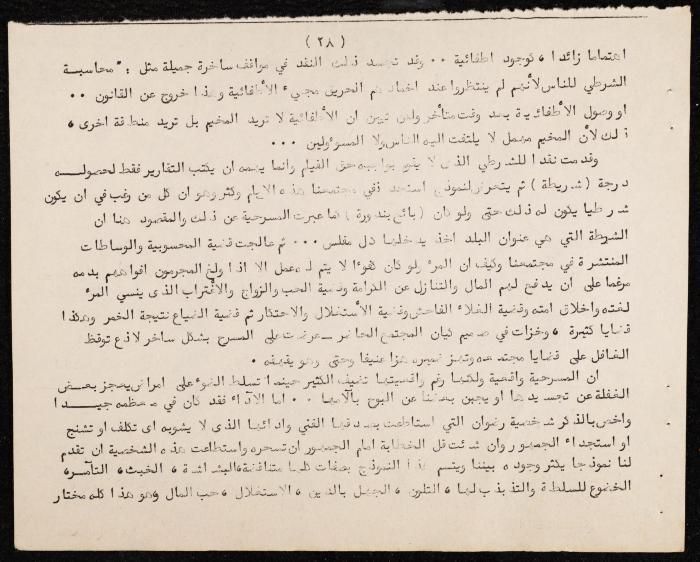 ( ٢٨ )
اهتماما زائدا ، كوجود اطفائية ٠٠ وقد تجسد ذلك النقد في مواقف ساخرة جميلة مثل : " محاسبة
الشرطي للناس لأنهم لم ينتظروا عند اخمادهم الحريق مجيء الأطفائية وهذا خروج عن القانون ٠٠
او وصول الأطفائية بعد وقت متأخر ولكن تبين ان الأطفائية لا تريد المخيم بل تريد منطقة اخرى ،
ذلك لأن المخيم مهمل لا يلتفت اليه الناس ولا المسؤولين ٠٠٠
وقدمت نقدا للشرطي الذي لا يقوم بواجبه حق القيام وانما يهمه ان يكتب التقارير فقط لحصوله
درجة ( شريطة ) ثم يتحرر لنموذج استجد في مجتمعنا هذه الايام وكثر وهو ان كل من رغب في ان يكون
شرطيا يكون له ذلك حتى ولو كان ( بائع بندورة ) كما عبرت المسرحية عن ذلك والمقصود هنا ان
الشرطة التي هي عنوان البلد اخذ يدخلها كل مفلس ٠٠٠ ثم عالجت قضية المحسوبية والوساطات
المنتشرة في مجتمعنا وكيف ان المرء ولو كان كفوءا لا يتم له عمل الا اذا ولغ المجرمون افواههم بدمه
مرغما على ان يدفع لهم المال والتنازل عن الكرامة وقضية الحب والزواج والأغتراب الذي ينسي المرء
لغته واخلاق امته وقضية الغلاء الفاحش وقضية الأستغلال والاحتكار ثم قضية الضياع نتيجة الخمر وهكذا
قضايا كثيرة ، وخزات في صميم كيان المجتمع الحاضر ــ عرضت على المسرح بشكل ساخر لاذع توقظ
الغافل على قضايا مجتمعه وتهز ضميره هزا عنيفا وحتى وهو يقهقه ٠
ان المسرحية واقعية ولكنها رغم واقعيتها تضيف الكثير حينما تسلط الضوء على امراض يعجز بعض
الغفلة عن تجسيدها او يجبن بعضنا عن البوح بآلامها ٠٠ اما الأداء فقد كان في معظمه جيدا
واخص بالذكر شخصية رضوان التي استطاعت بصدقها الفني وادائها الذي لا يشوبه اى تكلف او تشنج
او استجداء الجمهور وان شئت قل الخطابة امام الجمهور ان تسحره واستطاعت هذه الشخصية ان تقدم
لنا نموذجا يكثر وجوده بيننا ويتسم هذا النموذج بصفات كلها متناقضة ، البشاشة ، الخبث ، التآمر ،
الخضوع للسلطة والتذبذب لها ، التلون ، الجهل بالدين ، الاستغلال ، حب المال ، وهو هذا كله مختار